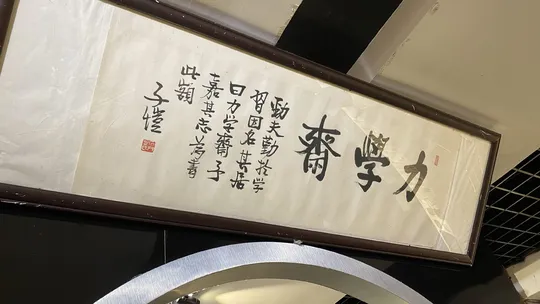 力學齋
勁夫勤於学
習因名其居
曰力学齋予
嘉其志為書
此額
子愷